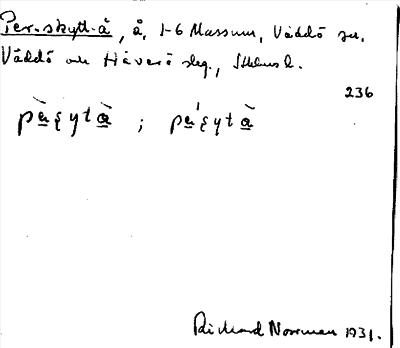 Per-skytt-å, å, 1-6 Massum, Väddö sn.
Väddö och Häverö slg., Sthlms l.
236
pàʂytà ; páʂytà
Rickard Norrman 1931.